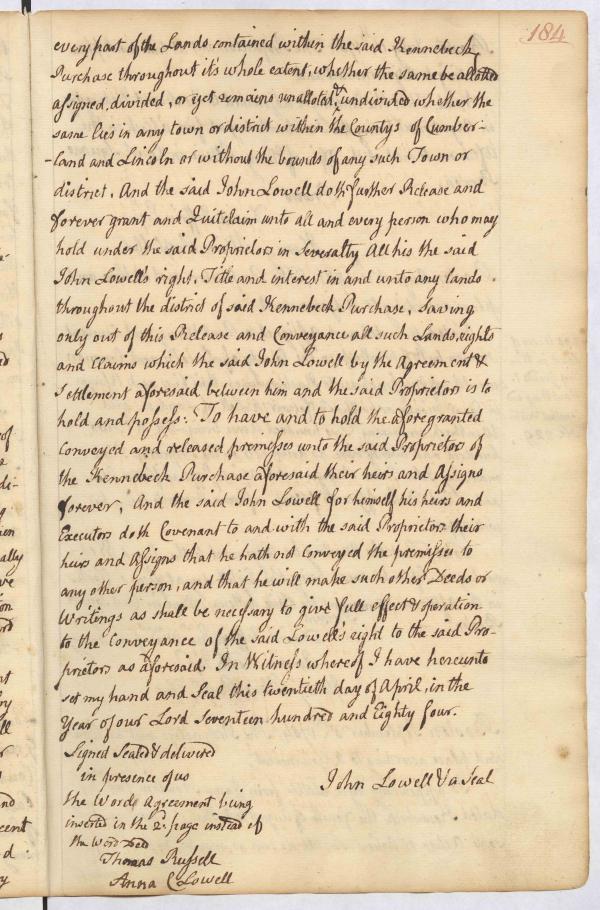 184
every part of the Lands contained within the said Kennebeck
Purchase throughout it's whole extent, whether the same be allotted
assigned, divided, or yet remains unalloted, & undivided whether the
same lies in any town or district within the Countys of Cumber-
-land and Lincoln or without the bounds of any such Town or
district. And the said John Lowell doth further Release and
forever grant and Quitclaim unto all and every person who may
hold under the said Proprietors in Severalty All his the said
John Lowell's right, Title and interest in and unto any lands
throughout the district of said Kennebeck Purchase, Saving
only out of this Release and Conveyance all such Lands, rights
and Claims which the said John Lowell by the Agreement &
Settlement aforesaid between him and the said Proprietors is to
hold and possess: To have and to hold the aforegranted
Conveyed and released premisses unto the said Proprietors of
the Kennebeck Purchase aforesaid their heirs and Assigns
forever, And the said John Lowell for himself his heirs and
Executors doth Covenant to and with the said Proprietors their
heirs and Assigns that he hath not Conveyed the premisses to
any other person, and that he will make such other Deeds or
Writings as shall be necessary to give full effect & operation
to the Conveyance of the said Lowell's right to the said Pro-
prietors as aforesaid. In Witness whereof I have hereunto
set my hand and Seal this twentieth day of April, in the
Year of our Lord Seventeen hundred and Eighty four.
Signed Sealed & delivered
in presence of us
John Lowell & a Seal
the Words Agreement being
inserted in the 2d. page instead of
the Word Deed
Thomas Russell
Anna C Lowell